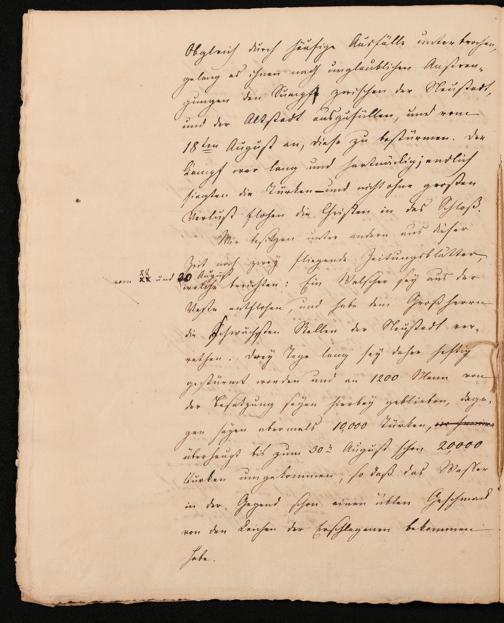 Obgleich durch häufige Ausfälle unterbrochen,
gelang es ihnen nach unglaublichen Anstren-
gungen den Sumpf zwischen der Neustadt,
und der Altstadt auszufüllen, und vom
18ten August an, diese zu bestürmen. Der
Kampf war lang und hartnäckig; endlich
siegten die Türken – und nicht ohne großen
Verlust flohen die Christen in das Schloß.
Wir besitzen unter andern aus dieser
Zeit noch zwey fliegende Zeitungsblätter,
vom und 30 August
welche berichten: Ein Welscher sey aus der
Veste entflohen, und habe dem Großherrn
die schwächsten Stellen der Neustadt ver-
rathen. Drey Tage lang sey daher heftig
gestürmt worden und an 1200 Mann von
der Besatzung seyen hierbey geblieben, dage-
gen seyen abermals 10,000 Türken,
überhaupt bis zum 30n August schon 20,000
Türken umgekommen, so daß das Wasser
in der Gegend schon einen üblen Geschmack
von den Leichen der Erschlagenen bekommen
habe.